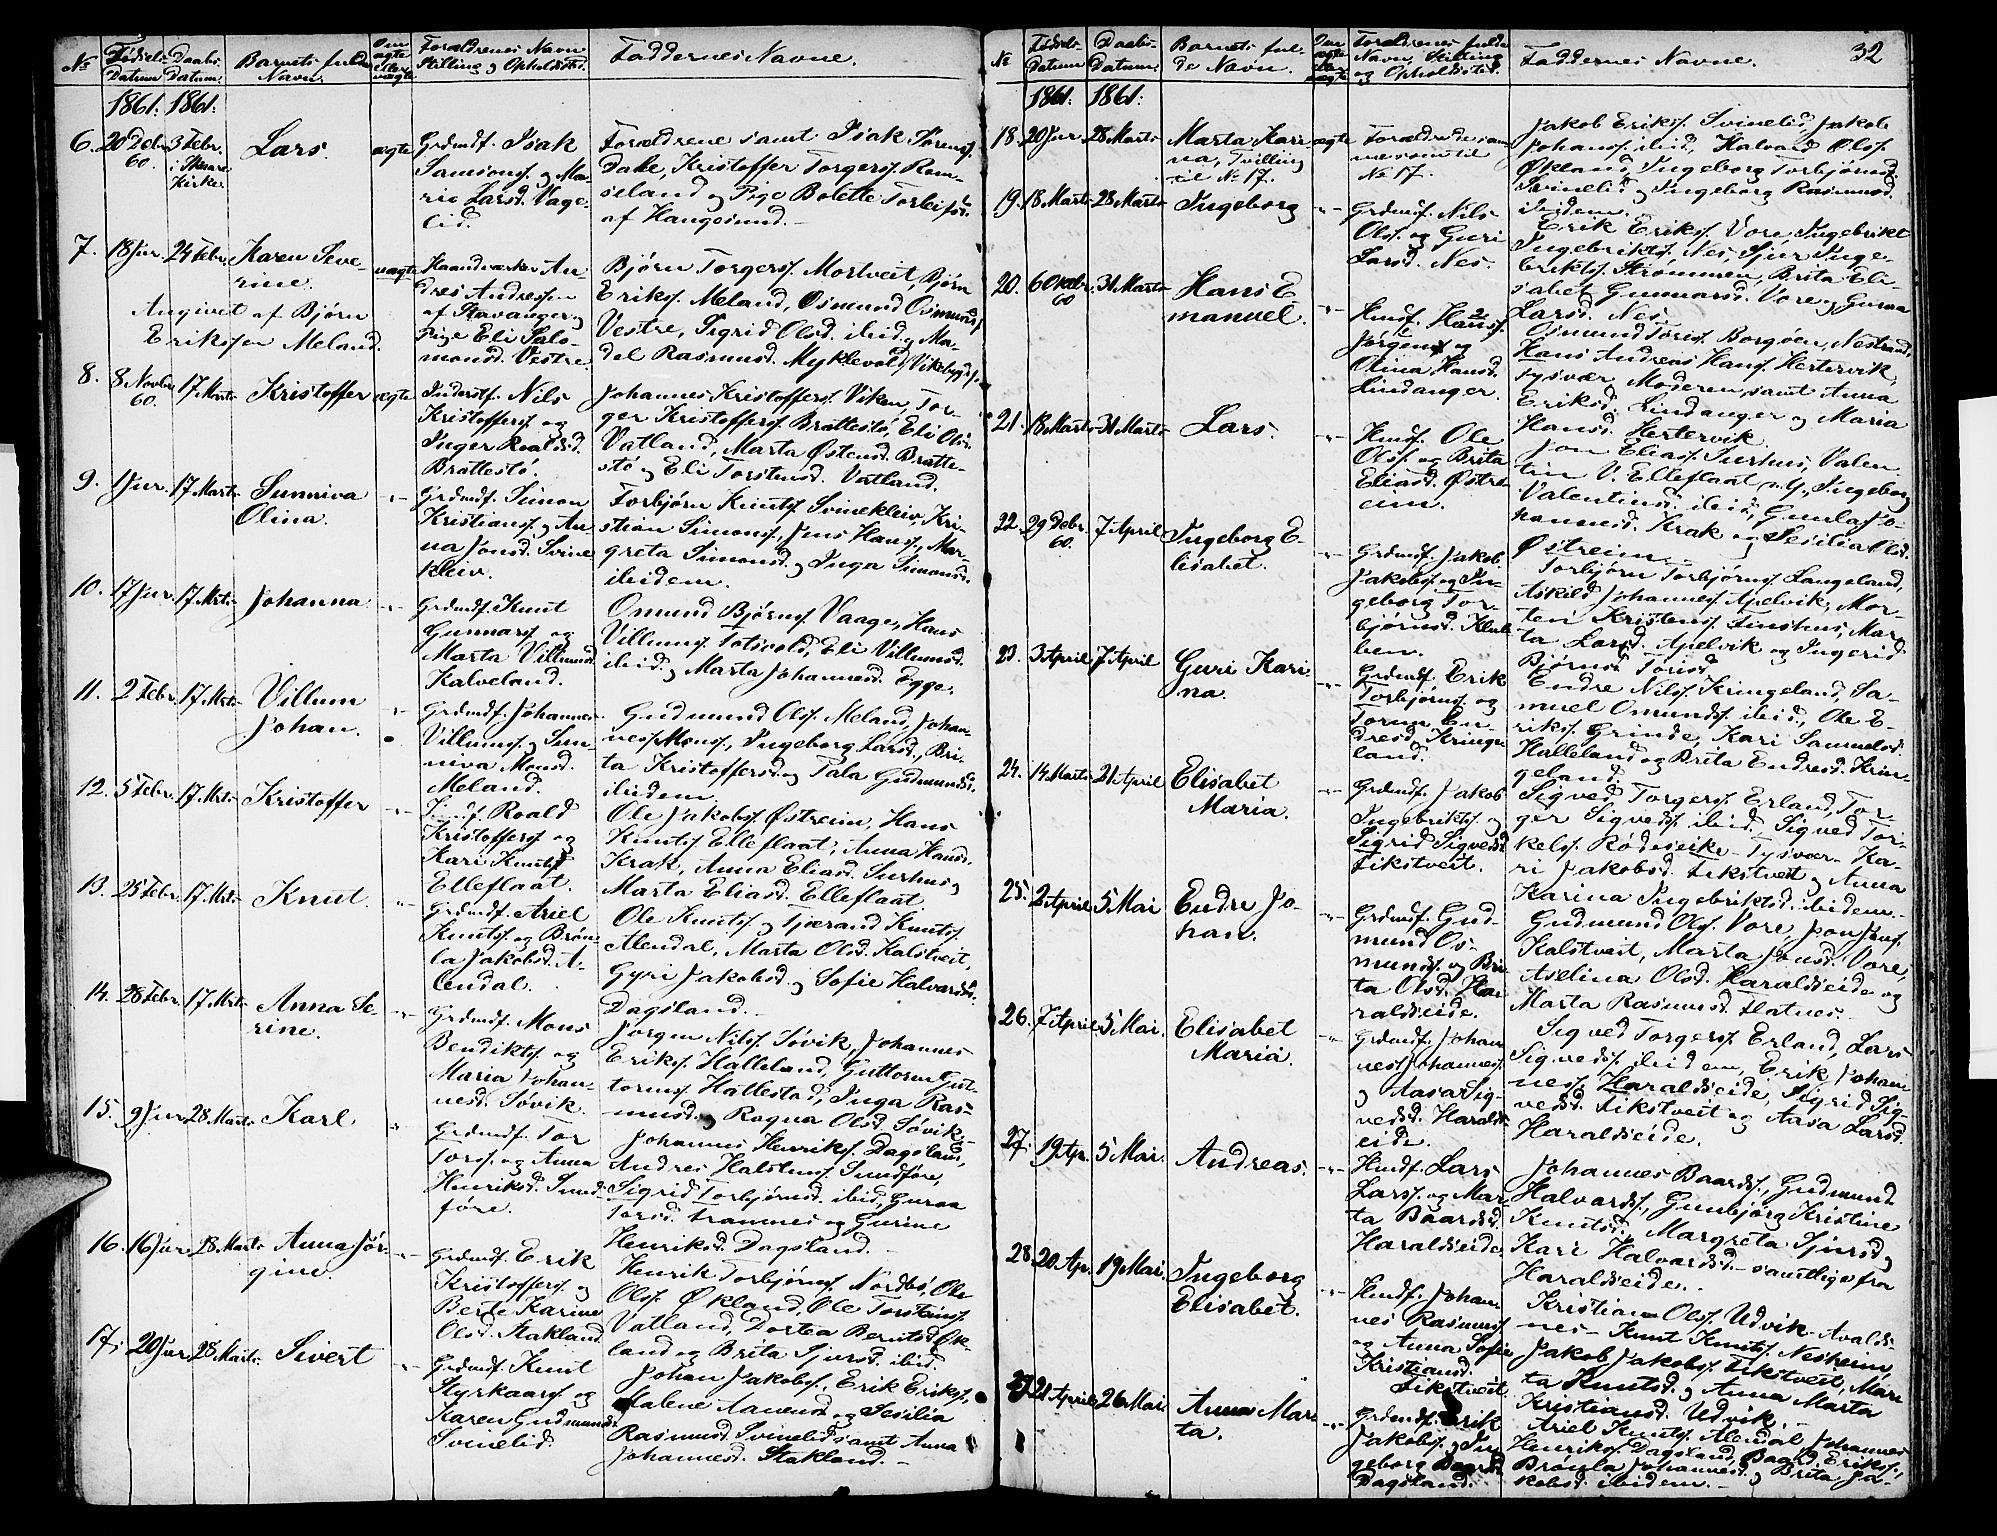 No Fødsels Datum. Daabs Datum. Barnets fulde Navn. Om ægte eller uægte Forældrenes Navn Stilling og Opholdssted. Faddernes Navne.
1861. 1861.
6. 20 Debr. 60. 3 Febr. i Skaare Kirke. Lars. ægte Grdmdf. Isak
Samsons. og Ma-
rie Larsd. Vage-
lid.
Forældrene samt Isak Sørens.
Dale, Kristoffer Torgers. Ram-
seland og Pige Bolette Torbjør.
af Haugesund.
7. 18 Jur. 24 Febr. Karen Seve-
rine.
Angivet af Bjørn
Eriksen Meland.
uægte Haandværker An-
dres Andressen
af Stavanger og
Pige Eli Salo-
monsd. Vestre.
Bjørn Torgers. Mortveit, Bjørn
Eriks. Meland, Osmund Osmunds.
Vestre, Sigrid Olsd. ibid. og Ma-
del Rasmusd. Myklevold, Vikebygd.
8. 8 Novbr. 60. 17 Marts Kristoffer ægte Inderstf. Nils
Kristoffers. og
Inger Roaldsd.
Brattestø.
Johannes Kristoffers. Viken, Tor-
ger Kristoffers. Brattestø, Eli Olsd.
Vatland, Marta Østensd. Bratte-
stø og Eli Torstensd. Vatland.
9. 1 Jur. 17 Marts Sunniva
Olina. " Grdmdf. Simon
Kristians. og An-
na Jonsd. Svine
kleiv.
Torbjørn Knuts. Svinekleiv, Kri-
stian Simons., Jens Hans., Mar-
greta Simonsd. og Inga Simonsd.
ibidem.
10. 17 Jur. 17 Mrts Johanna. " Grdmdf. Knut
Gunnars. og
Marta Villumsd.
Kalveland.
Omund Bjørns. Vaage, Hans
Villums. Totsvold, Eli Villumsd.
ibid. og Marta Johannesd. Egge.
11. 2 Febr. 17 Mrts Villum
Johan. " Grdmdf. Johannes
Villums. og Sun-
niva Monsd.
Meland.
Gudmund Ols. Meland, Johan
nes Mons., Ingeborg Larsd., Bri-
ta Kristoffersd. og Tala Gudmundsd.
ibidem.
12. 5 Febr. 17 Mrts Kristoffer " Roald
Kristoffers. og
Kari Knutsd.
Elleflaat.
Ole Jakobs. Østreim, Hans
Knuts. Elleflaat, Anna Hansd.
Krak, Anna Eliasd. Surhus og
Marta Eliasd. Elleflaat.
13. 25 Febr. 17 Mrts Knut. " Grdmdf. Ariel
Knuts. og Brøn-
la Jakobsd. A-
lendal.
Ole Knuts. og Tjærand Knuts.
Alendal, Marta Olsd. Kalstveit,
Gyri Jakobsd. og Sofie Halvardsd.
Dagsland.
14. 28 Febr. 17 Mrts Anna Se-
rine. " Grdmdf. Mons
Bendikts. og
Maria Johan-
nesd. Søvik.
Jørgen Nils. Søvik, Johannes
Eriks. Halleland, Guttorm Gut-
torms. Hallestad, Inga Ras-
musd. og Ragna Olsd. Søvik.
15. 9 Jur. 28 Marts Karl " Grdmdf. Tor
Tors. og Anna
Henriksd. Sund-
føre.
Johannes Henriks. Dagsland,
Andres Halstens. Sundføre,
Sigrid Torbjørnsd. ibid., Guroa
Torsd. Framnes og Gurine
Henriksd. Dagsland.
16. 16 Jur. 28 Marts Anna Jør-
gine. " Grdmdf. Erik
Kristoffers. og
Berte Karine
Olsd. Stakland.
Henrik Torbjørns. Nordbø, Ole
Ols. Økland, Ole Torstens.
Vatland, Dortea Berntsd. Øk-
land og Brita Sjursd. ibid.
17. 20 Jur. 28 Marts Sivert " Grdmdf. Knut
Styrkaars. og
Karen Gudmunds.
Svinelid.
Johan Jakobs., Erik Eriks.,
Malene Aanensd. og Sesilia
Rasmusd. Svinelid samt Anna
Johannesd. Stakland.
32
No Fødsels Datum. Daabs Datum. Barnets ful-
de Navn. Om ægte eller uægte Forældrenes fulde
Navn, Stilling
og Opholdssted. Faddernes Navne.
1861. 1861.
18. 20 Jur. 28 Marts Marta Kari
na, Tvilling
til No 17. ægte Forældrene sam
me som til
No 17.
Jakob Eriks. Svinelid, Jakob
Johans. ibid., Halvard Ols.
Økland, Ingeborg Torbjørnsd.
Svinelid og Ingeborg Rasmusd.
ibidem.
19. 18 Marts 28 Marts Ingeborg " Grdmdf. Nils
Ols. og Guri
Larsd. Nes.
Erik Eriks. Vore, Ingebrikt
Ingebrikts. Nes, Sjur Inge-
brikts. Strømmen, Brita Eli-
sabet Gunnarsd. Vore og Guroa
Larsd. Nes.
20. 6 Oktbr. 60 31 Marts Hans E-
manuel. " Husf. Hans
Jørgens. og
Olina Hansd.
Lindanger.
Osmund Toris. Borgøen, Nestrand,
Hans Andreas Hans. Hertervik,
Tysvær, Moderen, samt Anna
Eriksd. Lindanger og Maria
Hansd. Hertervik.
21. 18 Marts 31 Marts Lars. " Husf. Ole
Ols. og Brita
Eliasd. Østre-
eim.
Jon Elias. Surhus, Valen-
tin V. Elleflaat, Ingeborg
Valentinsd. ibid., Gunla Jo-
hannesd. Krak og Sesilia Olsd.
Østreim.
22. 29 Debr. 60. 7 April Ingeborg E-
lisabet. " Grdmdf. Jakob
Jakobs. og In-
geborg Tor-
bjørnsd. Klub-
ben.
Torbjørn Torbjørns. Langeland,
Askild Johannes. Apelvik, Mor-
ten Kristens. Finshus, Mar-
ta Larsd. Apelvik og Ingerid
Bjørnsd. Torisd.
23. 3 April 7 April Guri Kari-
na. " Grdmdf. Erik
Torbjørns. og
Torun En-
dresd. Kringe-
land.
Endre Nils. Kringeland, Sa-
muel Omunds. ibid., Ole E-
riks. Grinde, Kari Samuelsd.
Halleland og Brita Endresd. Krin-
geland.
24. 14 Marts 21 April Elisabet
Maria. " Grdmdf. Jakob
Ingebrikts. og
Sigrid Sigvedsd.
Fikstveit.
Sigved Torgers. Erland, Tor-
ger Sigveds. ibid., Sigved Tor-
kels. Rødeseike Tysvær Ka-
ri Jakobsd. Fikstveit og Anna
Karina Ingebriktsd. ibidem.
25. 2 April 5 Mai Endre Jo-
han. " Grdmdf. Gud-
mund Os-
munds. og Bri-
ta Olsd. Ha-
raldseide.
Gudmund Ols. Vore, Jon Jons.
Kalstveit, Marta Jonsd. Vore,
Aselina Olsd. Haraldseide og
Marta Rasmusd. Hatnes.
26. 7 April 5 Mai. Elisabet
Maria. " Grdmdf. Johan
nes Johannes.
og Aasa Sig-
vedsd. Haralds-
eide.
Sigved Torgers. Erland, Lars
Sigveds. ibidem, Erik Johan-
nes. Haraldseide, Sigrid Sig-
vedsd. Fikstveit og Aasa Larsd.
Haraldseide.
27. 19 Ap. 5 Mai. Andreas. " Husf. Lars
Lars. og Mar-
ta Baardsd.
Haraldseide
Johannes Baards., Gudmund
Halvards., Gunbjørg Kristine
Knutsd., Margreta Sjursd. og
Kari Halvardsd. samtlige fra
Haraldseide.
28. 20 Ap. 19 Mai. Ingeborg
Elisabet. " Husf. Johan
nes Rasmus.
og Anna Sofie
Kristiansd.
Fikstveit.
Kristian Ols. Udvik Avalds-
nes Knut Knuts. Nesheim,
Jakob Jakobs. Fikstveit, Mari-
ta Knutsd. og Anna Marta
Kristiansd. Udvik.
29. 21 April 26 Mai Anna Mar-
ta. " Grdmdf. Erik
Jakobs. og In-
geborg Baardsd.
Dagsland.
Ariel Knuts. Alendal, Johannes
Henriks. Dagsland, Baard Eriks.,
Brønla Johannesd. og Brita Ja-
kobsd. ibidem.